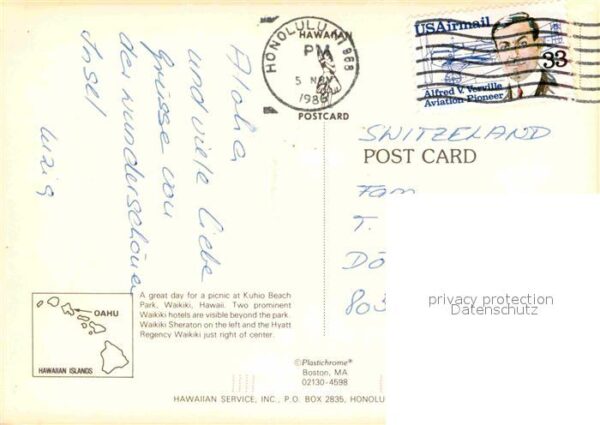 Aloha
und viele liebe
Grüsse von
der wunderschönen
Insel
HONOLULU
HAWAIIAN
PM
5 NOV
1986
POSTCARD
USAirmail
33
Alfred V. Verville
Aviation Pioneer
SWITZELAND
POST CARD
Fam
T.
DÖ
803
privacy protection
Datenschutz
OAHU
HAWAIIAN ISLANDS
A great day for a picnic at Kuhio Beach
Park, Waikiki, Hawaii. Two prominent
Waikiki hotels are visible beyond the park.
Waikiki Sheraton on the left and the Hyatt
Regency Waikiki just right of center.
©Plastichrome®
Boston, MA
02130-4598
HAWAIIAN SERVICE, INC., P.O. BOX 2835, HONOLU